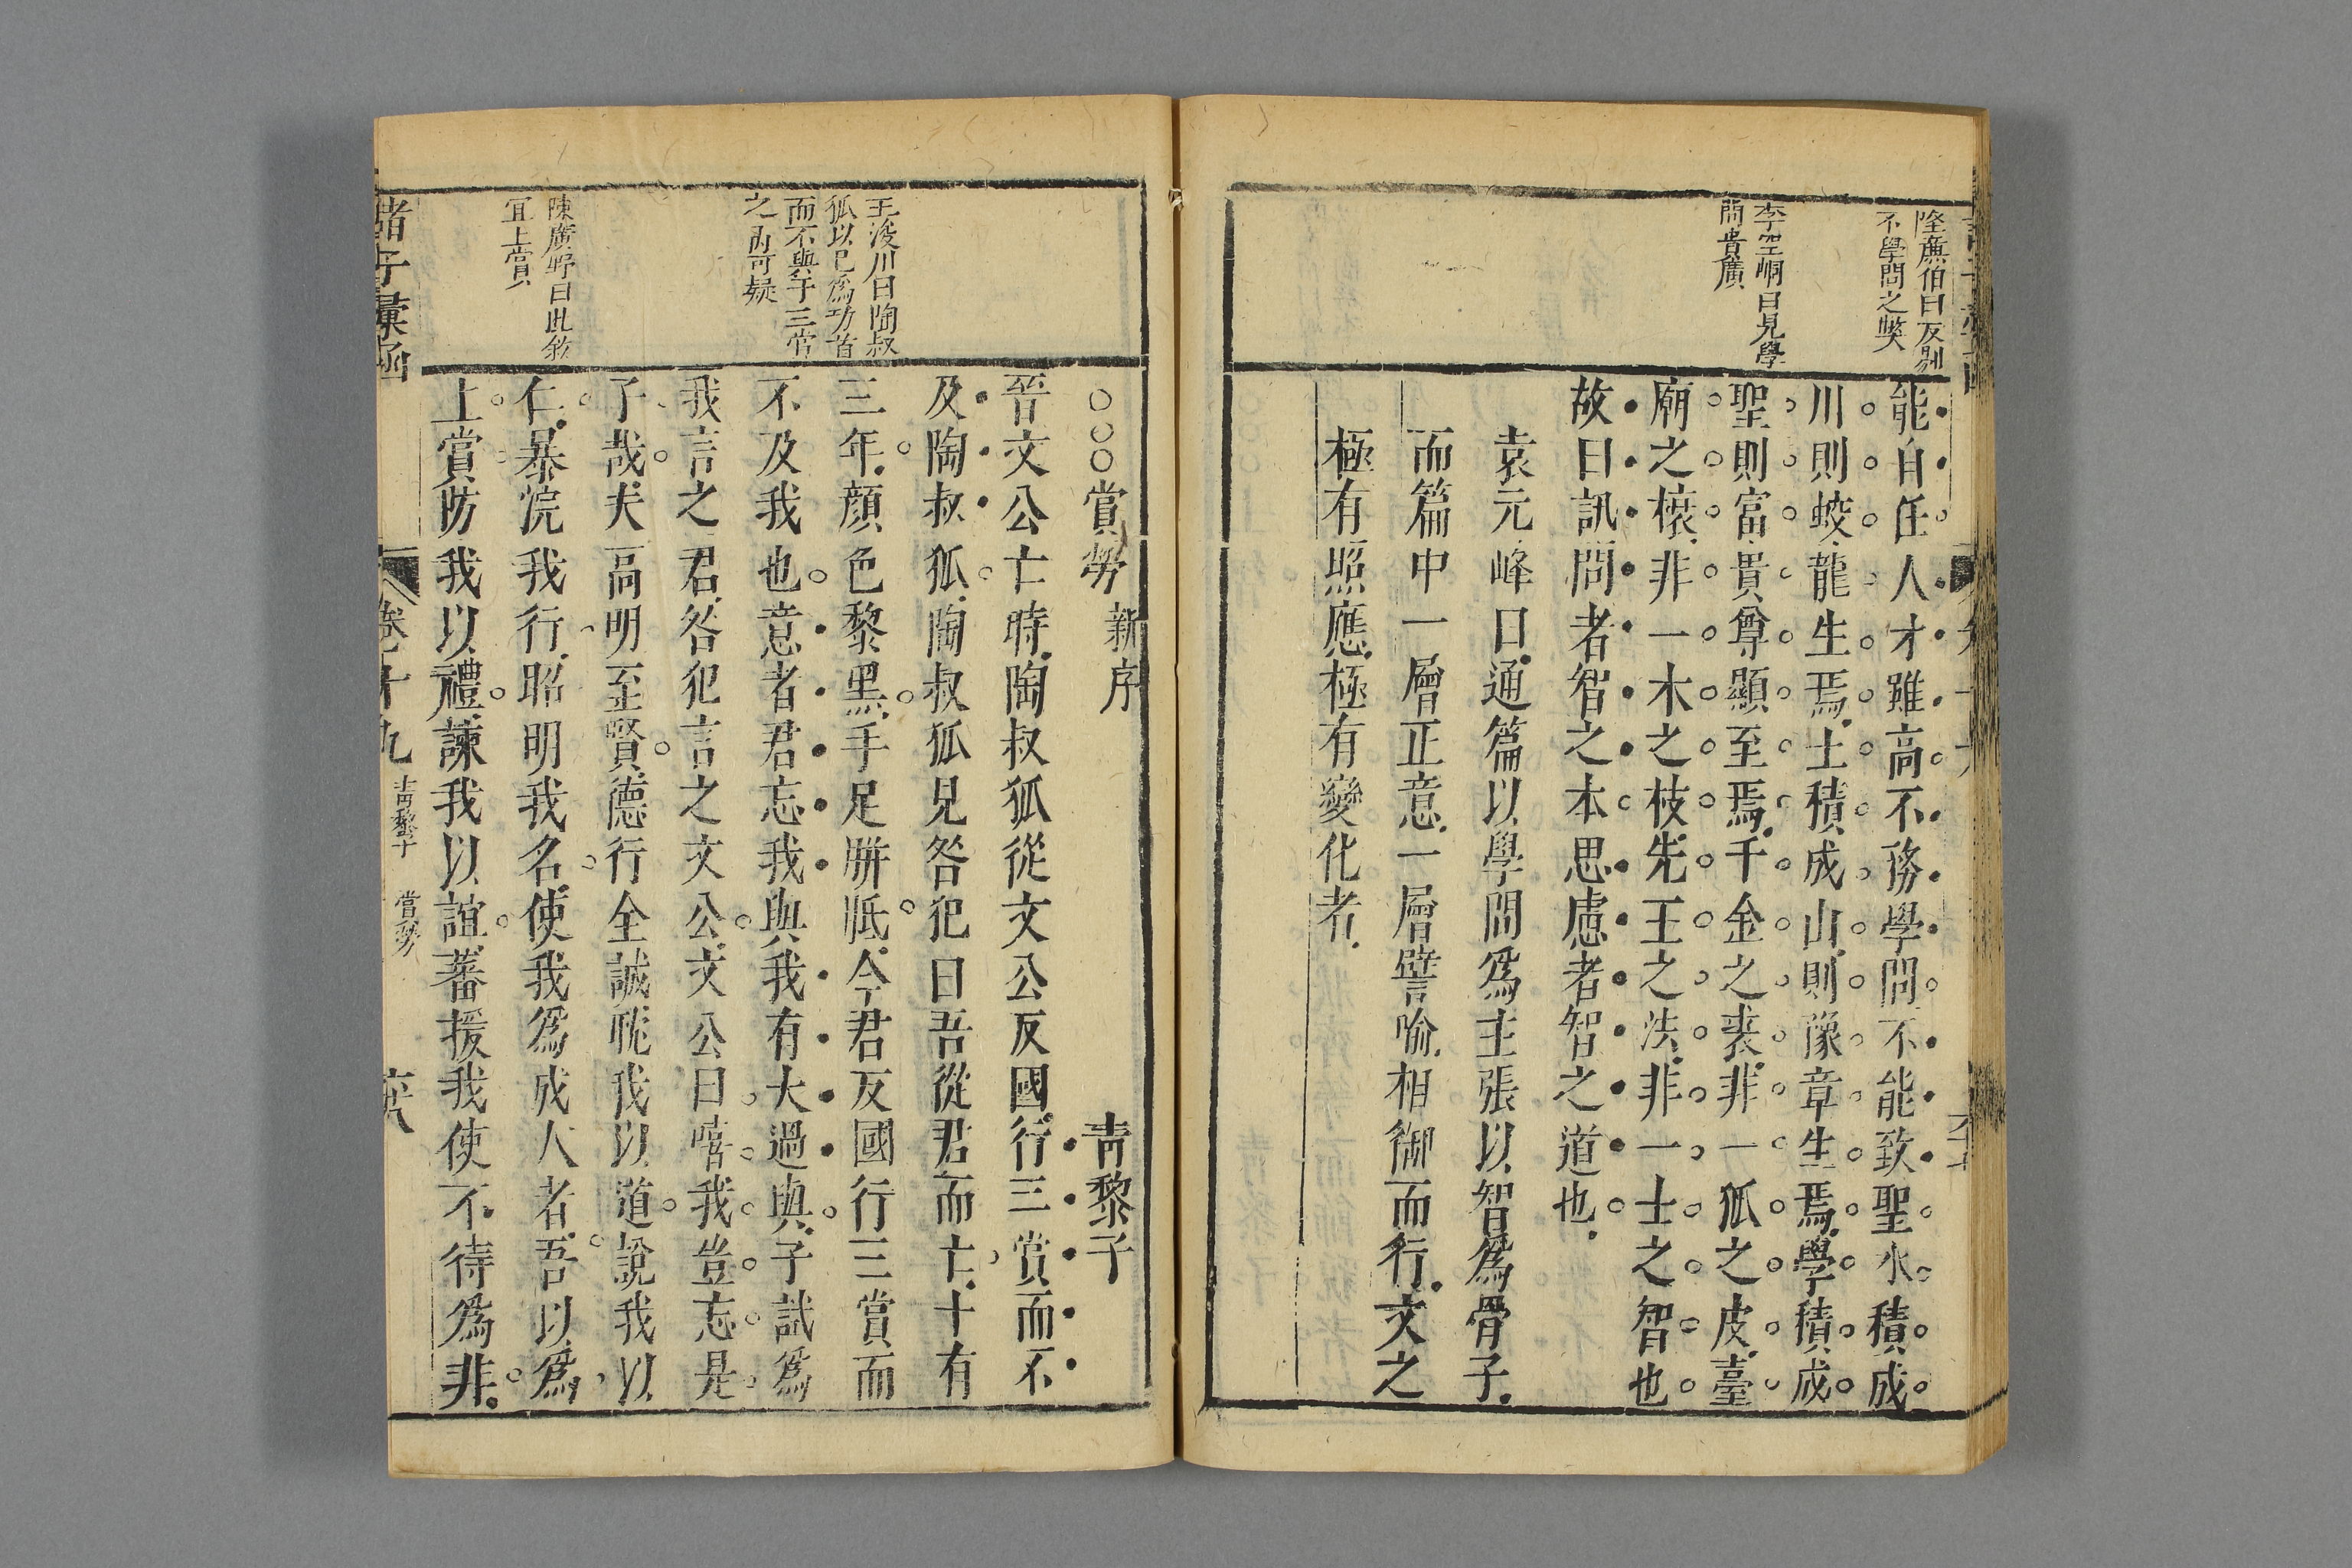 隆廉伯曰反剔
不學問之獘
李空峒曰見學
問貴廣
能自任人才雖高不務學問不能致聖水積成
川則蛟龍生焉土積成山則豫章生焉學積成
聖則富貴尊顯至焉千金之裘非一狐之皮臺
廟之榱非一木之枝先王之法非一士之智也
故曰訊問者智之本思慮者智之道也
袁元峰曰通篇以學問爲主張以智爲骨子
而篇中一層正意一層譬喻相御而行文之
極有照應極有變化者
王浚川曰陶叔
狐以已爲功首
而不與于三賞
之內可疑
陳廣野曰此敘
宜上賞
○○○賞勞 新序 青黎子
晉文公亡時陶叔狐從文公反國行三賞而不
及陶叔狐陶叔狐見咎犯曰吾從君而亡十有
三年顏色黎黑手足胼胝今君反國行三賞而
不及我也意者君忘我與我有大過與子試爲
我言之君咎犯言之文公文公曰嘻我豈忘是
子哉夫高明至賢德行全誠耽我以道說我以
仁暴浣我行昭明我名使我爲成人者吾以爲
上賞防我以禮諫我以誼蕃援我使不待爲非
諸子彙函 卷十九 青黎子 賞勞 六八